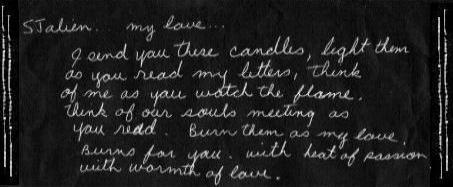 STalien... my love...
I send you these candles, light them
as you read my letters, think
of me as you watch the flame.
Think of our souls meeting as
you read. Burn them as my love
Burns for you. with heat of passion
with warmth of love.